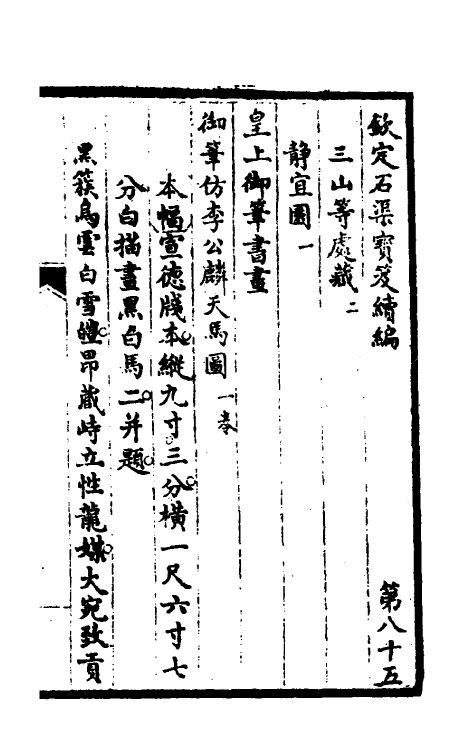 欽定石渠寶笈續編 第八十五
三山等處藏二
靜宜園一
皇上御筆書畫
御筆仿李公麟天馬圖一卷
本幅宣德牋本縱九寸三分橫一尺六寸七
分白描畫黑白馬二并題
黑簇烏雲白雪皚昂藏峙立性龍媒大宛致貢